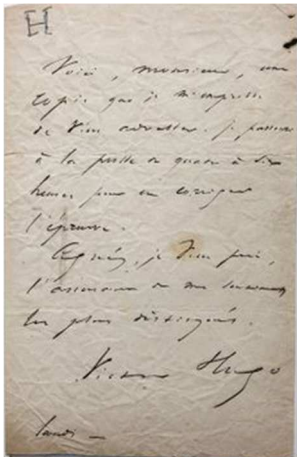 H
Voici, monsieur, une
copie que je m'empresse
de vous adresser. Je passerai
à la poste de quatre à six
heures pour en corriger
l'épreuve.
Agréez, je vous prie,
l'assurance de mes sentiments
les plus distingués.
Victor Hugo
lundi —